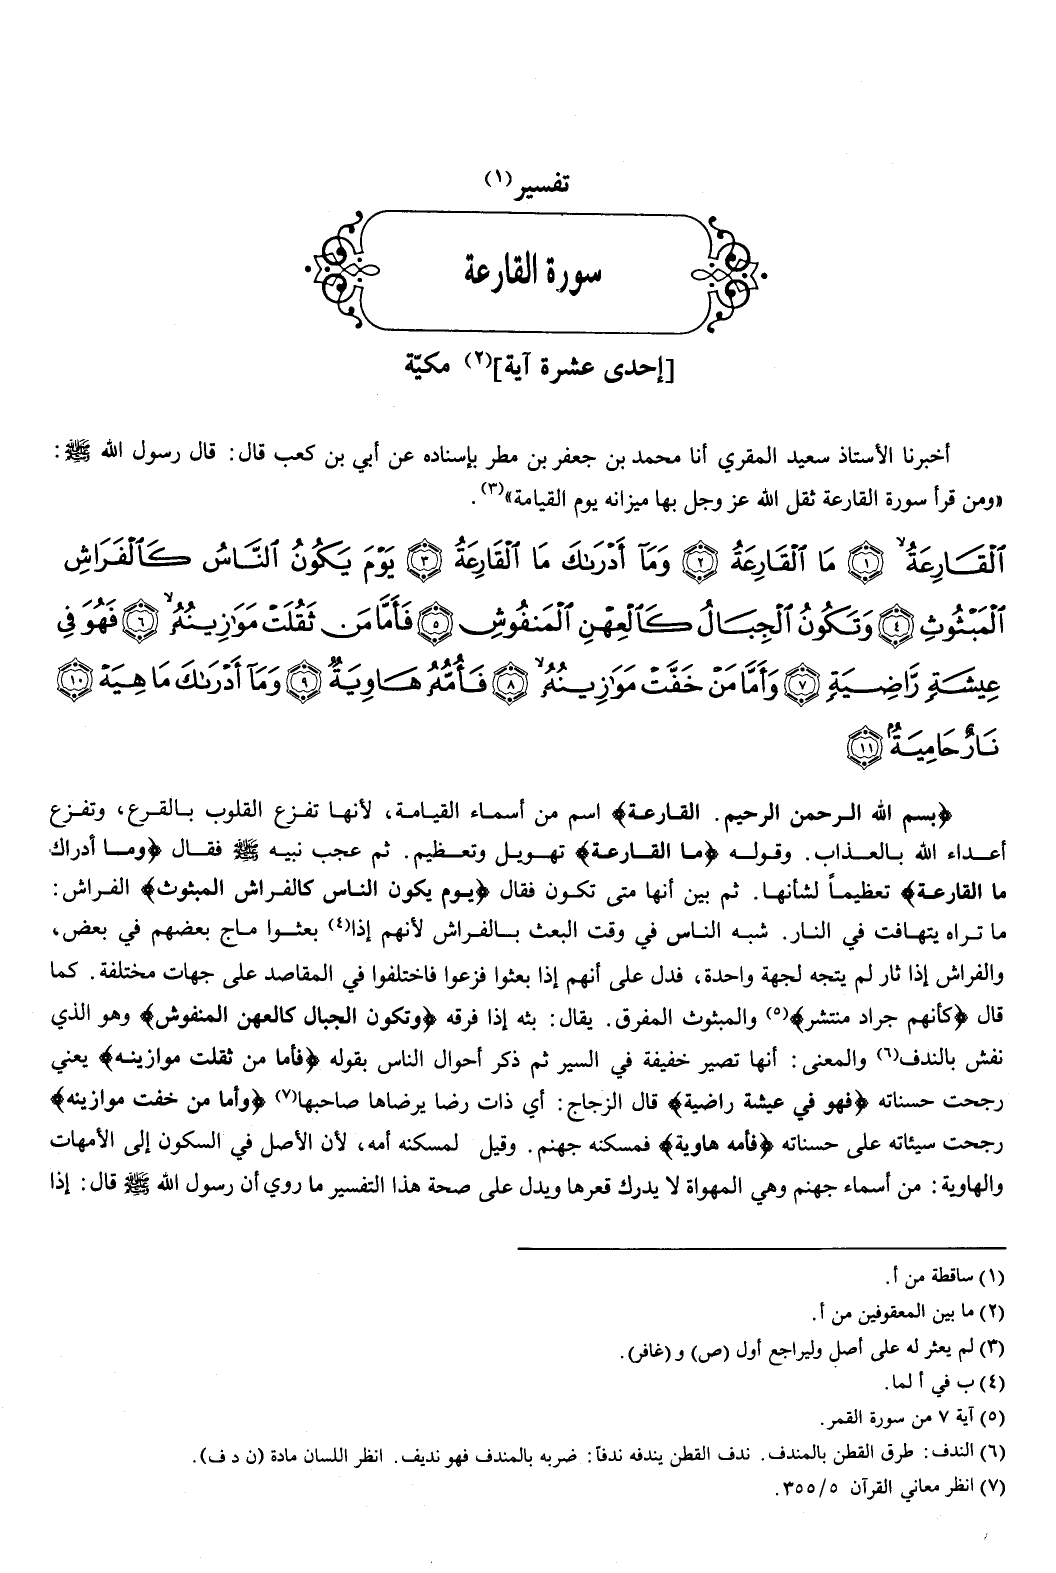 تفسير(١)
سورة القارعة
[إحدى عشرة آية](٢) مكيّة
أخبرنا الأستاذ سعيد المقري أنا محمد بن جعفر بن مطر بإسناده عن أبي بن كعب قال: قال رسول الله ﷺ:
«ومن قرأ سورة القارعة ثقل الله عز وجل بها ميزانه يوم القيامة»(٣).
ٱلۡقَارِعَةُ ۝١ مَا ٱلۡقَارِعَةُ ۝٢ وَمَآ أَدۡرَىٰكَ مَا ٱلۡقَارِعَةُ ۝٣ يَوۡمَ يَكُونُ ٱلنَّاسُ كَٱلۡفَرَاشِ
ٱلۡمَبۡثُوثِ ۝٤ وَتَكُونُ ٱلۡجِبَالُ كَٱلۡعِهۡنِ ٱلۡمَنفُوشِ ۝٥ فَأَمَّا مَن ثَقُلَتۡ مَوَٰزِينُهُۥ ۝٦ فَهُوَ فِي
عِيشَةٖ رَّاضِيَةٖ ۝٧ وَأَمَّا مَنۡ خَفَّتۡ مَوَٰزِينُهُۥ ۝٨ فَأُمُّهُۥ هَاوِيَةٞ ۝٩ وَمَآ أَدۡرَىٰكَ مَا هِيَهۡ ۝١٠
نَارٌ حَامِيَةُۢ ۝١١
﴿بسم الله الرحمن الرحيم. القارعة﴾ اسم من أسماء القيامة، لأنها تفزع القلوب بالقرع، وتفزع
أعداء الله بالعذاب. وقوله ﴿ما القارعة﴾ تهويل وتعظيم. ثم عجب نبيه ﷺ فقال ﴿وما أدراك
ما القارعة﴾ تعظيماً لشأنها. ثم بين أنها متى تكون فقال ﴿يوم يكون الناس كالفراش المبثوث﴾ الفراش:
ما تراه يتهافت في النار. شبه الناس في وقت البعث بالفراش لأنهم إذا(٤) بعثوا ماج بعضهم في بعض،
والفراش إذا ثار لم يتجه لجهة واحدة، فدل على أنهم إذا بعثوا فزعوا فاختلفوا في المقاصد على جهات مختلفة. كما
قال ﴿كأنهم جراد منتشر﴾(٥) والمبثوث المفرق. يقال: بثه إذا فرقه ﴿وتكون الجبال كالعهن المنفوش﴾ وهو الذي
نفش بالندف(٦) والمعنى: أنها تصير خفيفة في السير ثم ذكر أحوال الناس بقوله ﴿فأما من ثقلت موازينه﴾ يعني
رجحت حسناته ﴿فهو في عيشة راضية﴾ قال الزجاج: أي ذات رضا يرضاها صاحبها(٧) ﴿وأما من خفت موازينه﴾
رجحت سيئاته على حسناته ﴿فأمه هاوية﴾ فمسكنه جهنم. وقيل لمسكنه أمه، لأن الأصل في السكون إلى الأمهات
والهاوية: من أسماء جهنم وهي المهواة لا يدرك قعرها ويدل على صحة هذا التفسير ما روي أن رسول الله ﷺ قال: إذا
(١) ساقطة من أ.
(٢) ما بين المعقوفين من أ.
(٣) لم يعثر له على أصل وليراجع أول (ص) و(غافر).
(٤) ب في أ لما.
(٥) آية ٧ من سورة القمر.
(٦) الندف: طرق القطن بالمندف. ندف القطن يندفه ندفاً: ضربه بالمندف فهو نديف. انظر اللسان مادة (ن د ف).
(٧) انظر معاني القرآن ٣٥٥/٥.